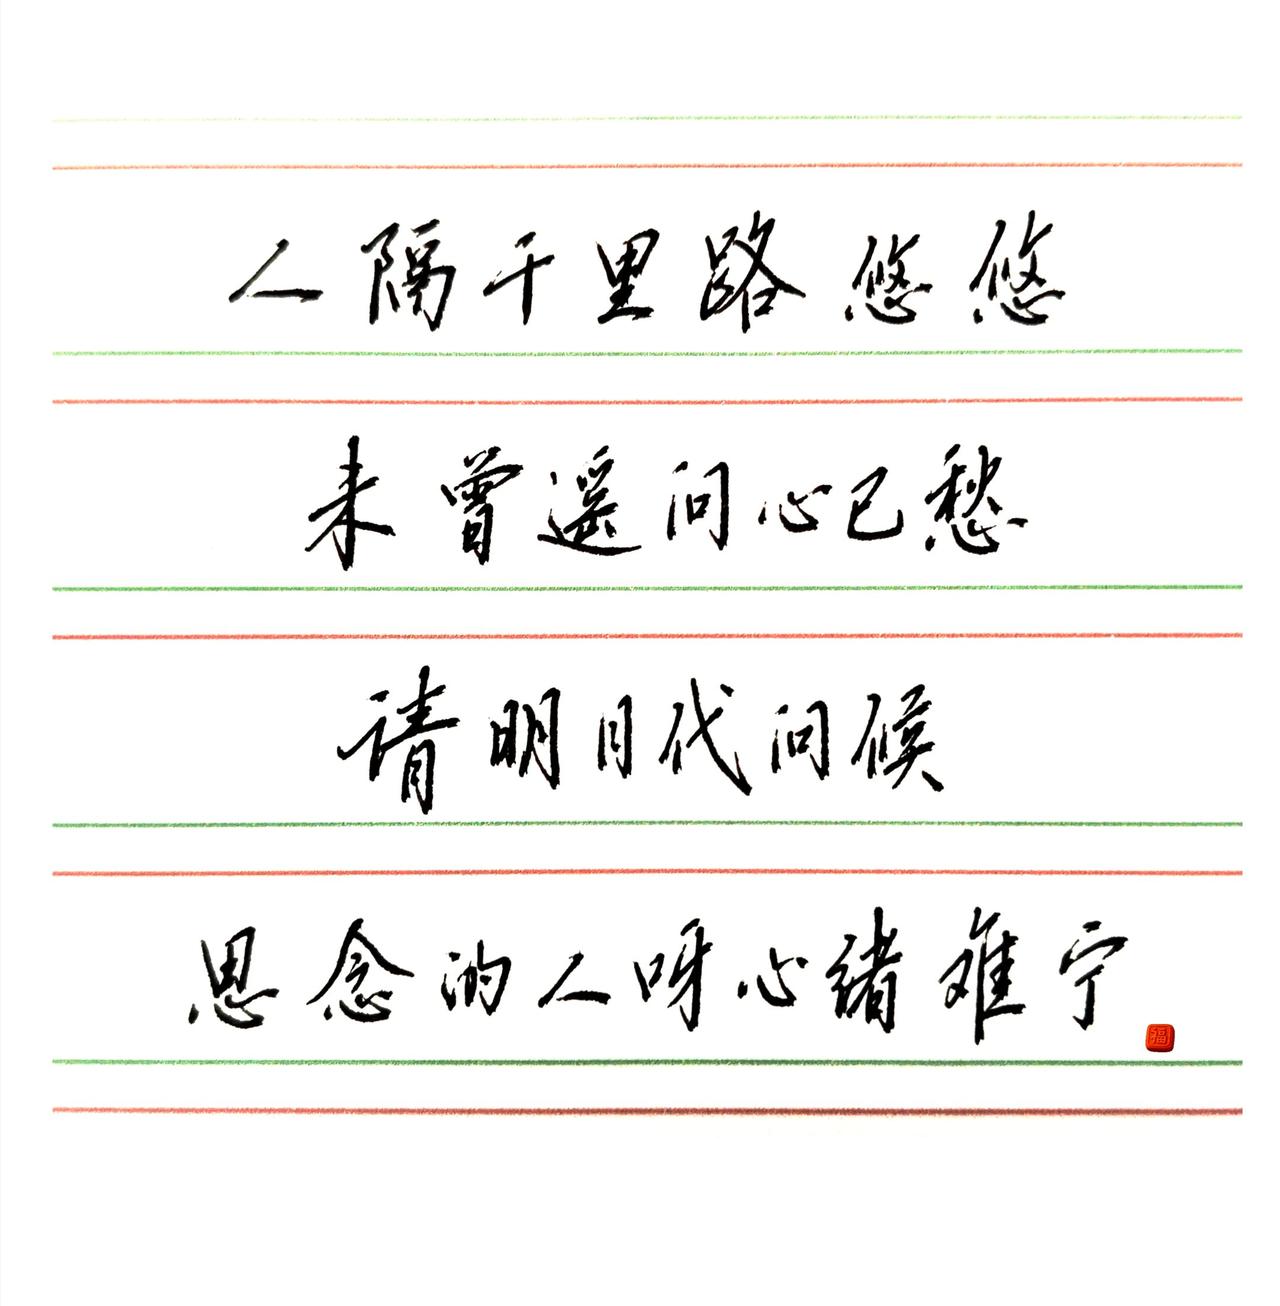 人隔千里路悠悠
未曾遥问心已愁
请明月代问候
思念的人呀心绪难宁
福